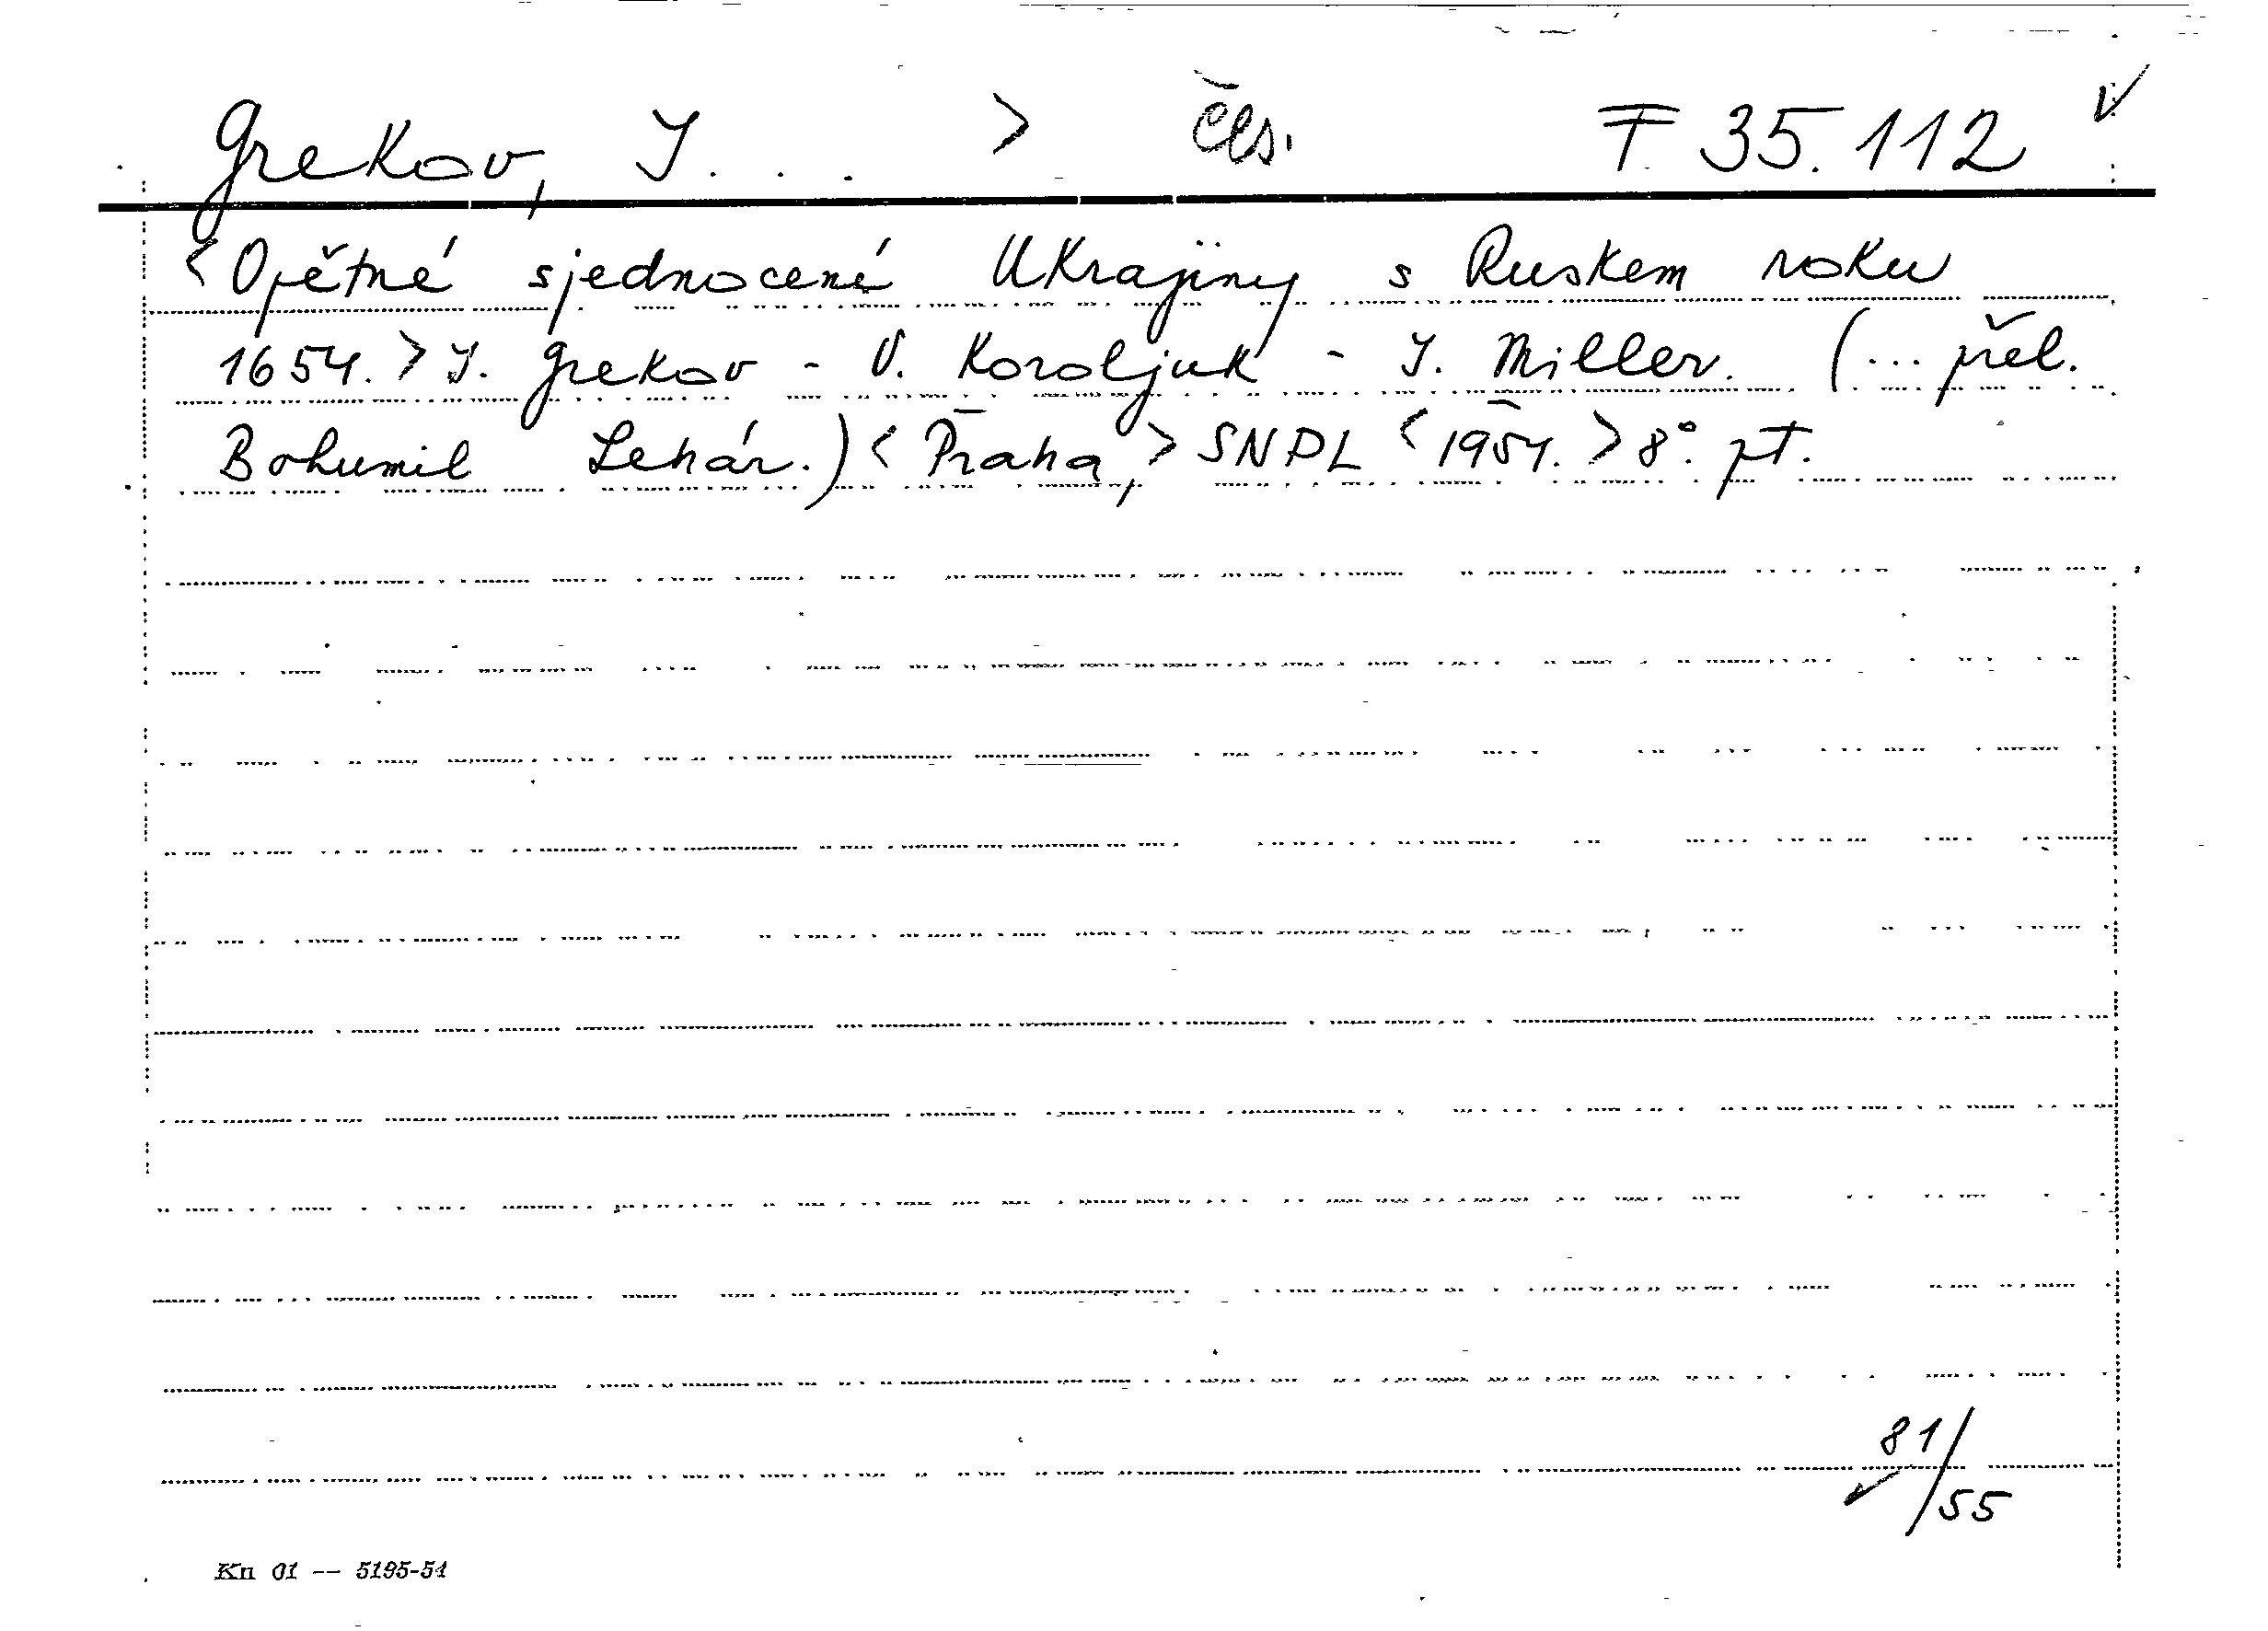 Grekov, I. . . > čes. F 35.112
<Opětné sjednocené Ukrajiny s Ruskem roku
1654.> I. Grekov - V. Koroljuk - I. Miller. (... přel.
Bohumil Lehár.) <Praha,> SNPL <1954.> 8°. pt.
81/55
Kn 01 -- 5195-54